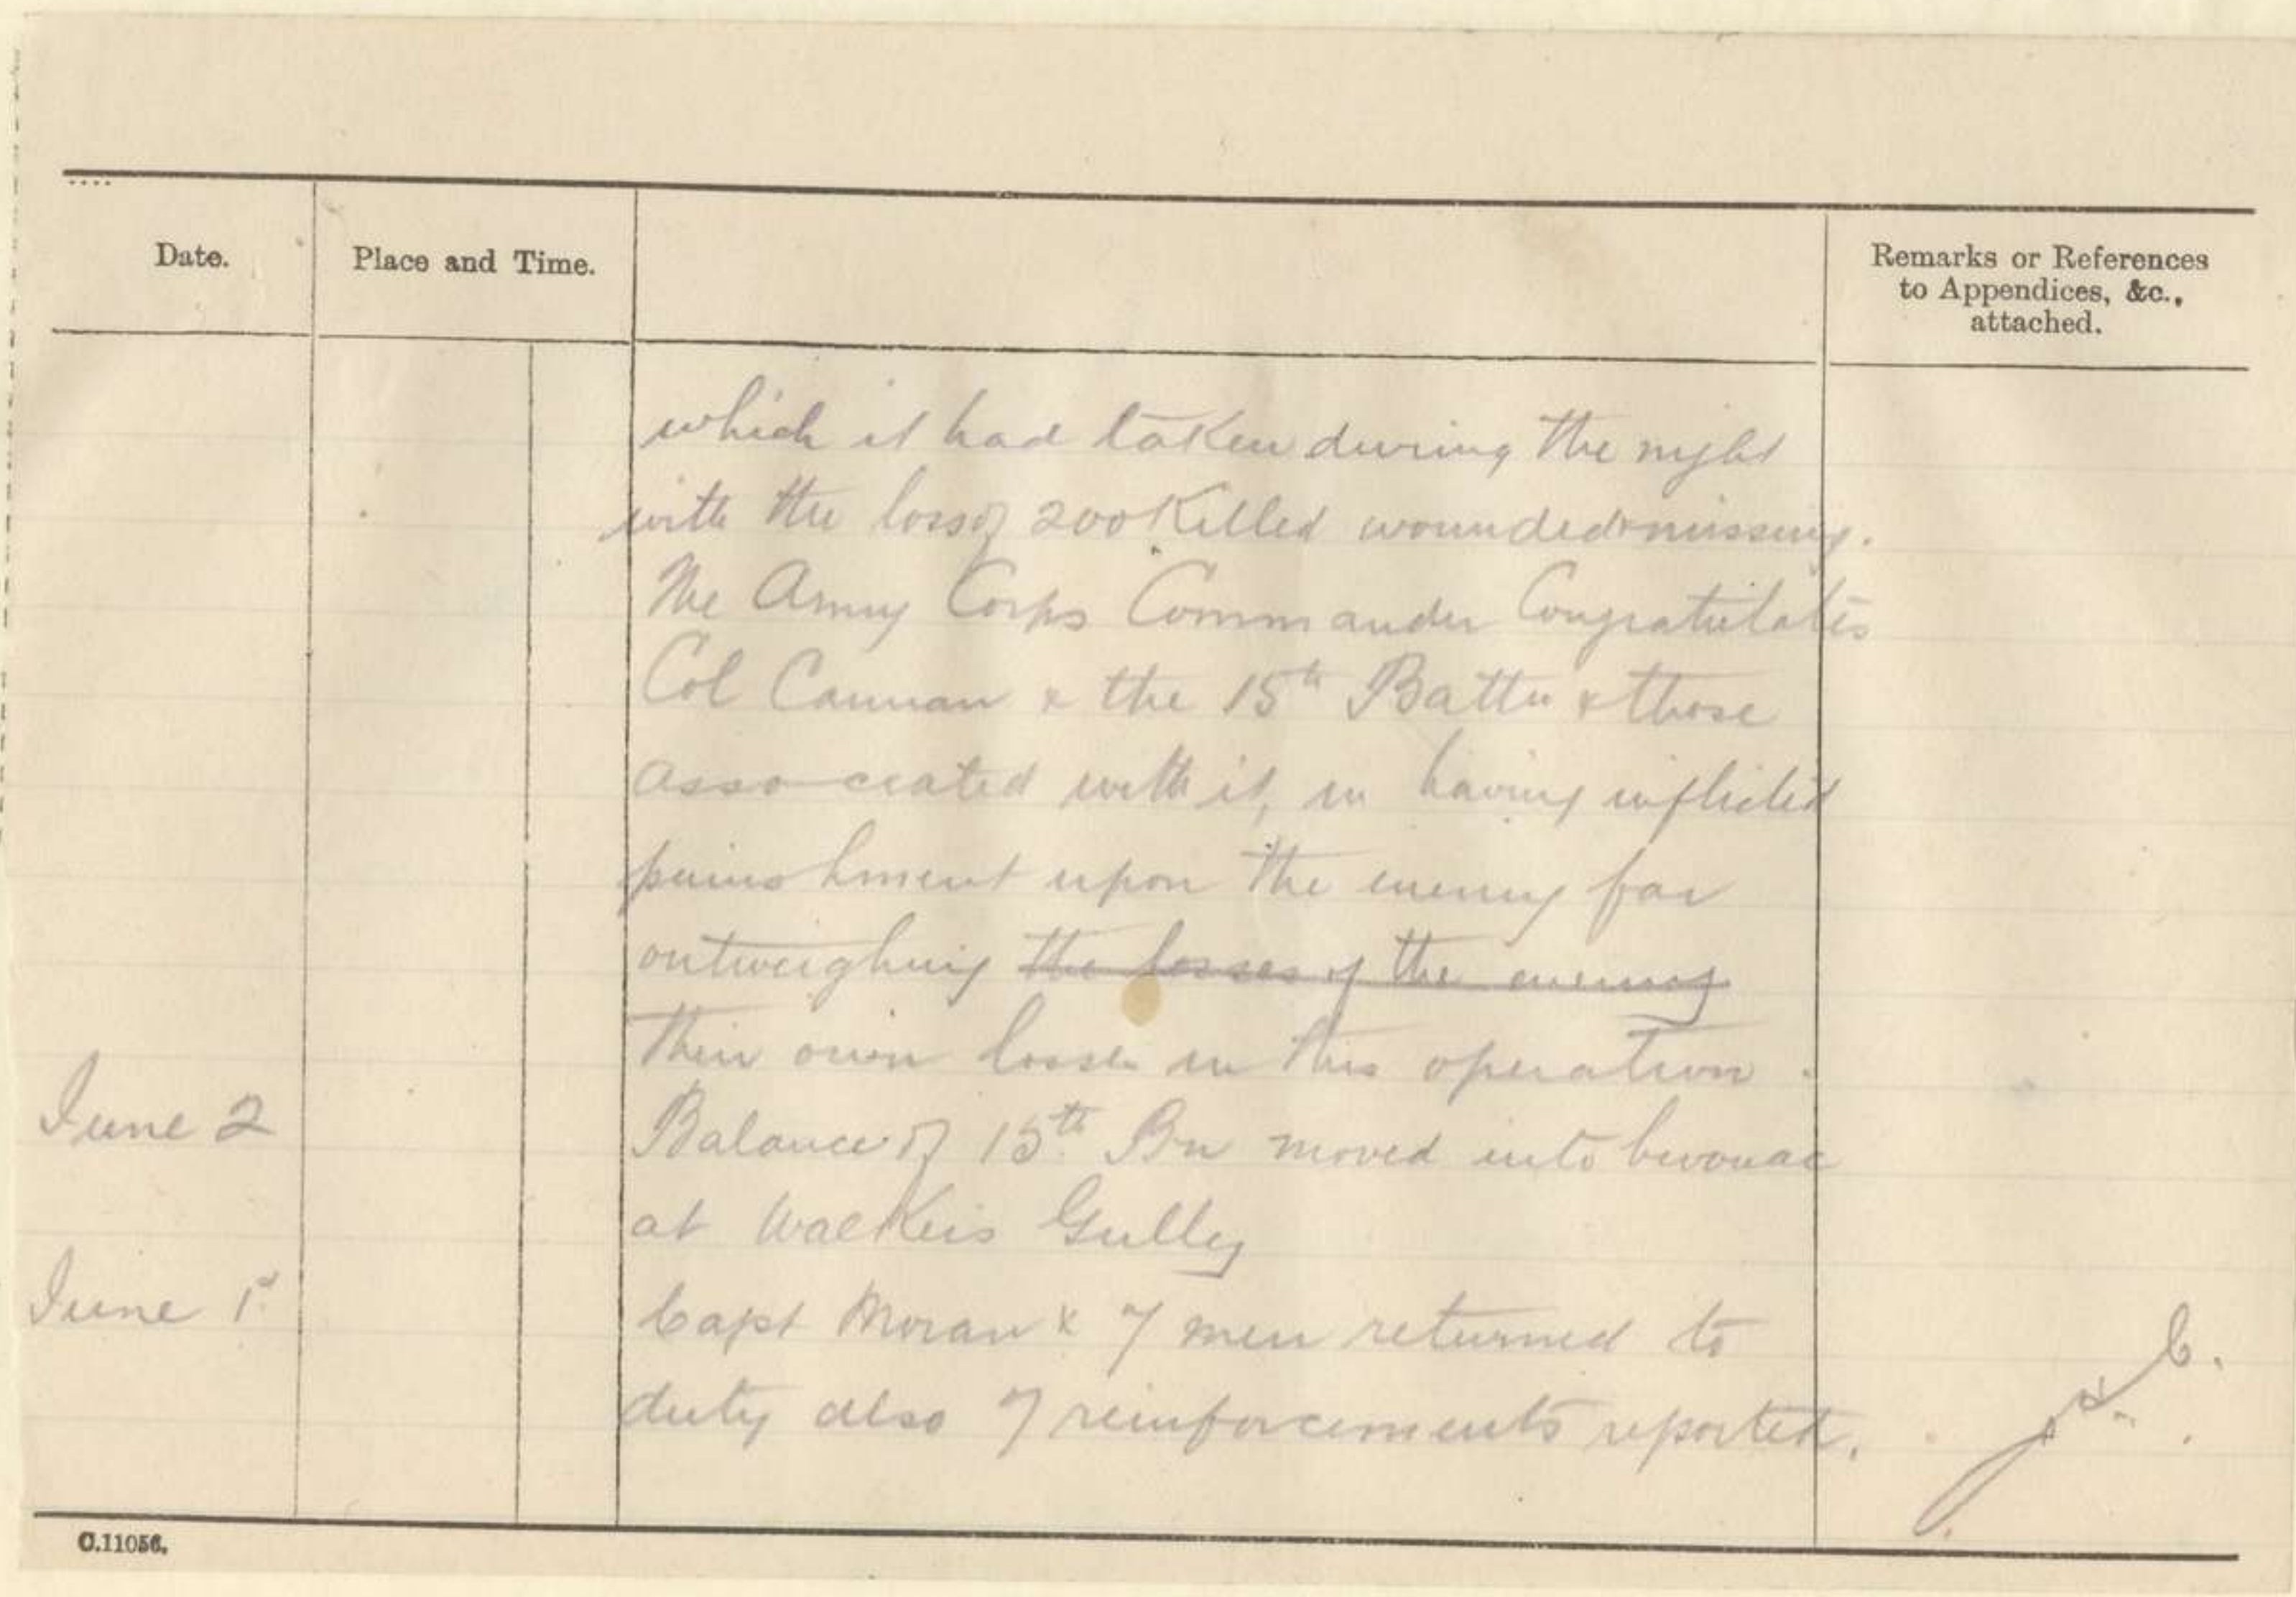 Date.
Place and Time.
Remarks or References
to Appendices, &c.,
attached.
which it had taken during the night
with the loss of 200 Killed wounded & missing.
The Army Corps Commander Congratulates
Col Cannan & the 15th Battn & those
associated with it, in having inflicted
punishment upon the enemy far
outweighing the losses of the enemy
their own losses in this operation.
June 2 Balance of 15th Bn moved into bivouac
at Walkers Gully
June 1st Capt Moran & 7 men returned to
duty also 7 reinforcements reported.
C.11056.